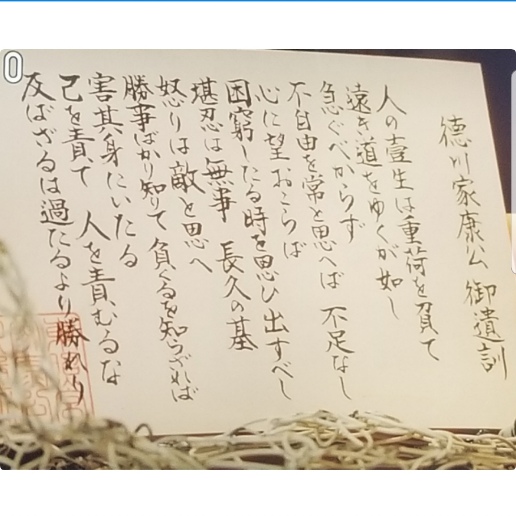 0
德川家康公 御遺訓
人の壹生は重荷を負て
遠き道をゆくが如し
急ぐべからず
不自由を常と思へば 不足なし
心に望おこらば
困窮したる時を思ひ出すべし
堪忍は無事 長久の基
怒りは敵と思へ
勝事ばかり知りて 負くるを知らざれば
害其身にいたる
己を責て 人を責むるな
及ばざるは過たるより勝れり